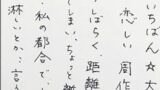 いちばん☆大
恋しい 周作
しばらく、距離
しまい、ちょっと
私の都合で、
淋しいとか、言